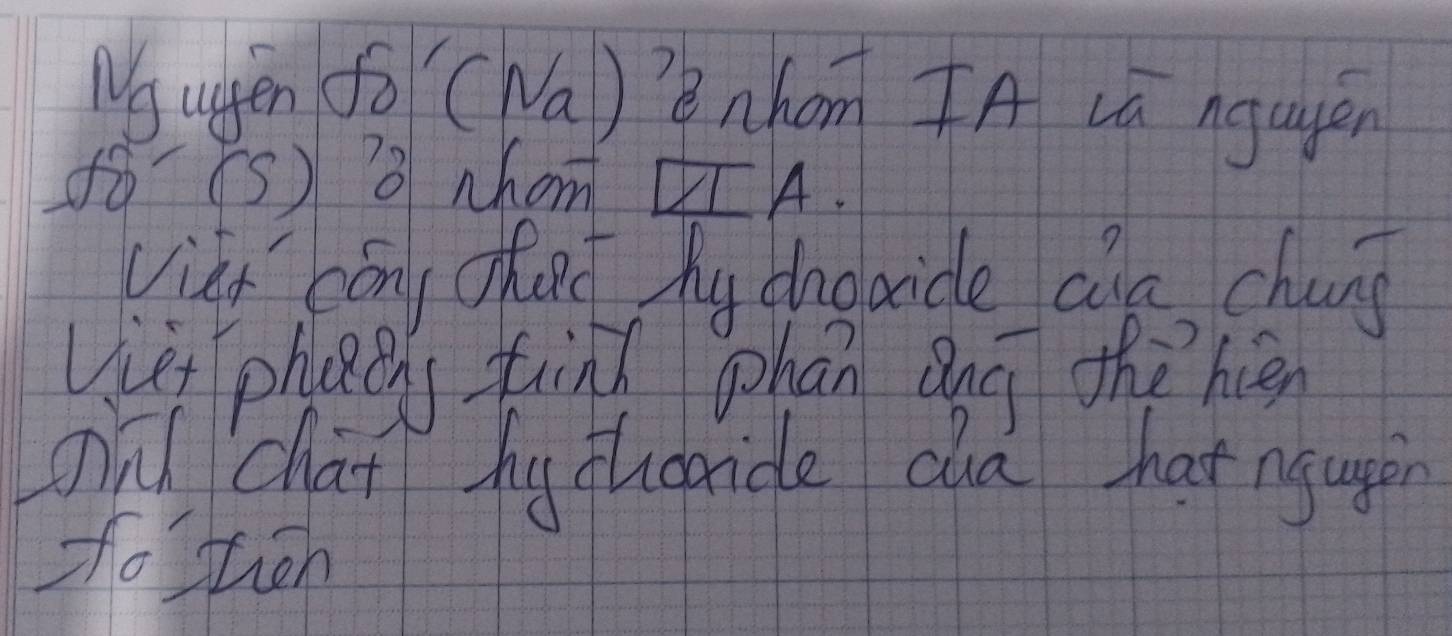 Nguyên tố (Na) ở nhóm IA và nguyên
tố (S) ở nhóm VIA.
Viết công thức hydroxide của chúng
Viết phương trình phản ứng thể hiện
tính chất hydroxide của hat nguyên
tố trên